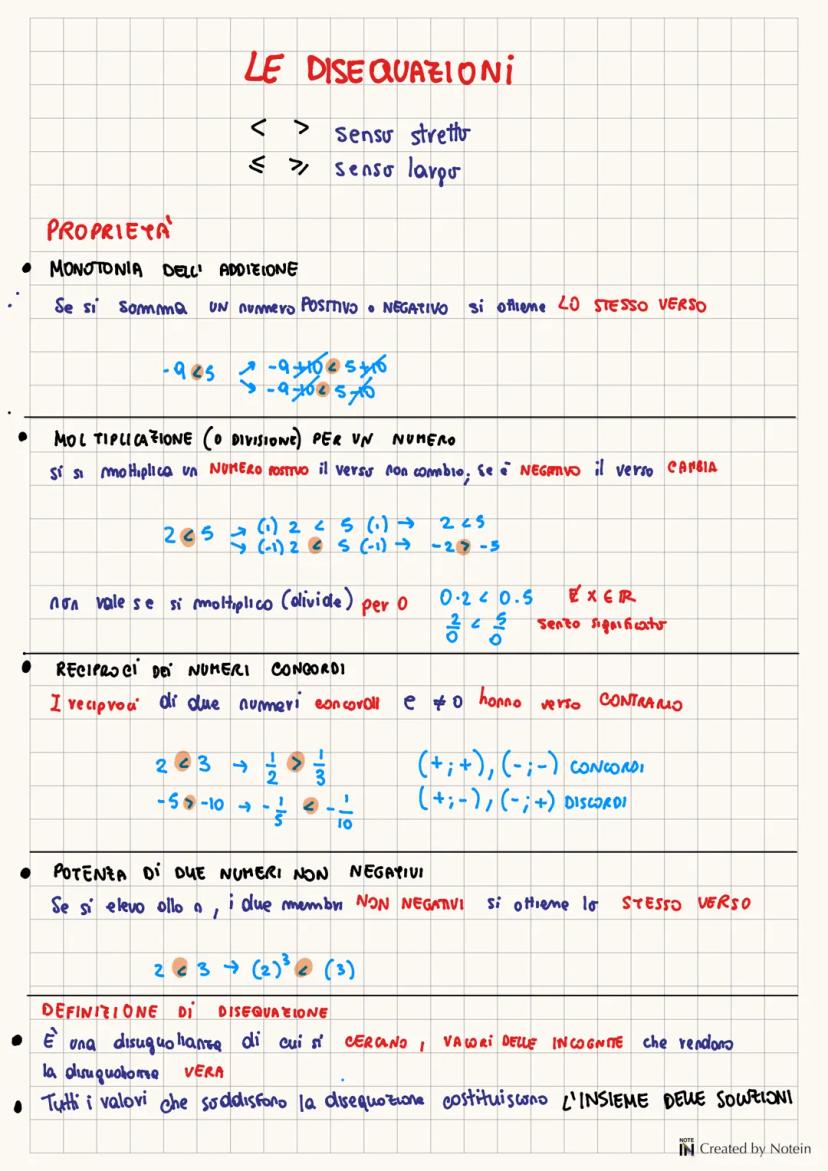 LE DISEQUAZIONI
< > senso stretto
≤ ≥ senso largo
PROPRIETÀ
• MONOTONIA DELL' ADDIZIONE
Se si somma UN numero POSITIVO o NEGATIVO si ottiene LO STESSO VERSO
-9 < 5 ↗ -9 +10 < 5 +10
↘ -9 -10 < 5 -10
• MOLTIPLICAZIONE (O DIVISIONE) PER UN NUMERO
Si si moltiplica un NUMERO POSITIVO il verso non cambia; se è NEGATIVO il verso CAMBIA
2 < 5 → (1) 2 < 5 (1) → 2 < 5
→ (-1) 2 < 5 (-1) → -2 > -5
non vale se si moltiplica (divide) per 0 0·2 < 0·5 ∄ x ∈ ℝ
2/0 < 5/0 senza significato
• RECIPROCI DEI NUMERI CONCORDI
I reciproci di due numeri concordi e ≠ 0 hanno verso CONTRARIO
2 < 3 → 1/2 > 1/3 (+;+), (-;-) CONCORDI
-5 > -10 → -1/5 < -1/10 (+;-), (-;+) DISCORDI
• POTENZA DI DUE NUMERI NON NEGATIVI
Se si eleva alla n, i due membri NON NEGATIVI si ottiene lo STESSO VERSO
2 < 3 → (2)³ < (3)
DEFINIZIONE DI DISEQUAZIONE
• È una disuguaglianza di cui si CERCANO i VALORI DELLE INCOGNITE che rendono
la disuguaglianza VERA
• Tutti i valori che soddisfano la disequazione costituiscono L'INSIEME DELLE SOLUZIONI
NOTE IN Created by Notein